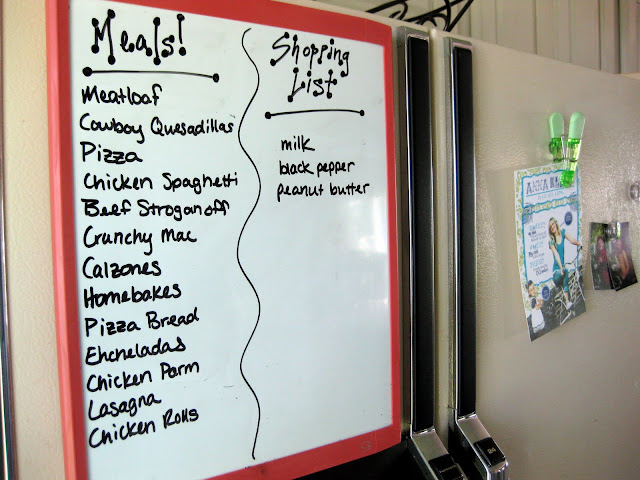 Meals!
Meatloaf
Cowboy Quesadillas
Pizza
Chicken Spaghetti
Beef Stroganoff
Crunchy Mac
Calzones
Homebakes
Pizza Bread
Ehcneladas
Chicken Parm
Lasagna
Chicken Rolls
Shopping
List
milk
black pepper
peanut butter
ANNA